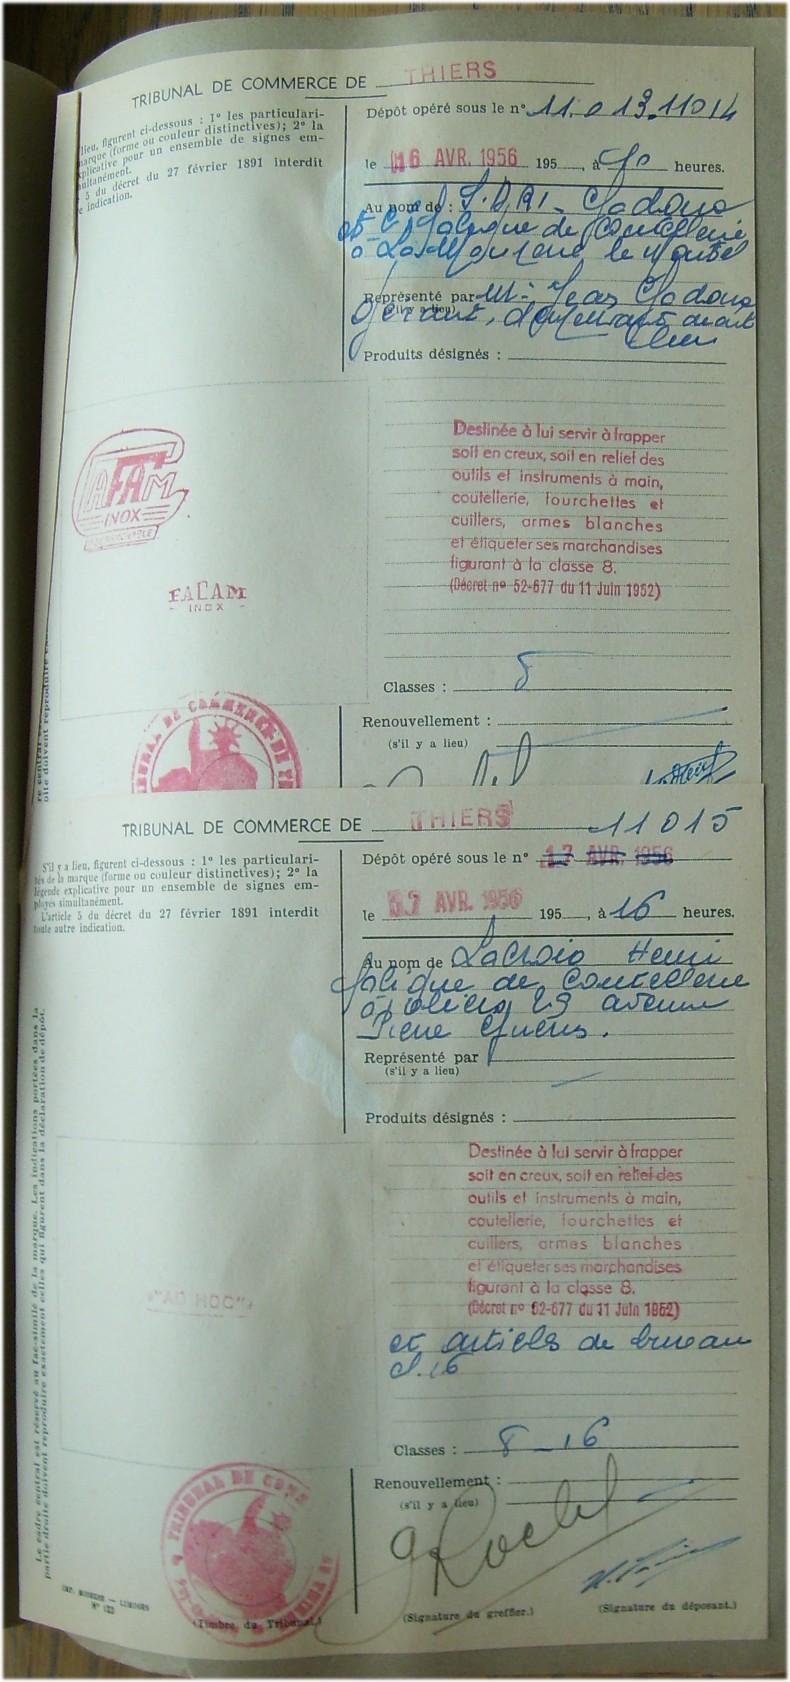 TRIBUNAL DE COMMERCE DE THIERS
lieu, figurent ci-dessous : 1° les particulari-
marque (forme ou couleur distinctives); 2° la
explicative pour un ensemble de signes em-
simultanément.
5 du décret du 27 février 1891 interdit
indication.
Dépôt opéré sous le n° 11.013.11014
le 16 AVR. 1956 195 , à heures.
Au nom de : S.A.R.L.
et Cie fabrique de Coutellerie
à La Monnerie le Montel
Représenté par M. Jean
(s'il y a lieu)
Gérant, demeurant au dit
lieu
Produits désignés :
FACAM
INOX
FACAM
- INOX -
Destinée à lui servir à frapper
soit en creux, soit en relief des
outils et instruments à main,
coutellerie, fourchettes et
cuillers, armes blanches
et étiqueter ses marchandises
figurant à la classe 8.
(Décret nº 52-677 du 11 Juin 1952)
Classes : 8
Renouvellement :
(s'il y a lieu)
TRIBUNAL DE COMMERCE DE
TRIBUNAL DE COMMERCE DE THIERS 11015
S'il y a lieu, figurent ci-dessous : 1° les particulari-
tés de la marque (forme ou couleur distinctives); 2° la
légende explicative pour un ensemble de signes em-
ployés simultanément.
L'article 5 du décret du 27 février 1891 interdit
toute autre indication.
Dépôt opéré sous le n° 17 AVR. 1956
le 17 AVR. 1956 195 , à 16 heures.
Au nom de Lacroix Henri
fabrique de Coutellerie
à 29 avenue
Pierre Guérin.
Représenté par
(s'il y a lieu)
Produits désignés :
"AD HOC"
Destinée à lui servir à frapper
soit en creux, soit en relief des
outils et instruments à main,
coutellerie, fourchettes et
cuillers, armes blanches
et étiqueter ses marchandises
figurant à la classe 8.
(Décret nº 52-677 du 11 Juin 1952)
et articles de bureau
cl. 16
Classes : 8 - 16
Renouvellement :
(s'il y a lieu)
Le cadre central est réservé au fac-similé de la marque. Les indications portées dans la
partie droite doivent reproduire exactement celles qui figurent dans la déclaration de dépôt.
TRIBUNAL DE COM
IMP. MODERNE — LIMOGES
(Timbre du Tribunal.)
(Signature du greffier.)
(Signature du déposant.)